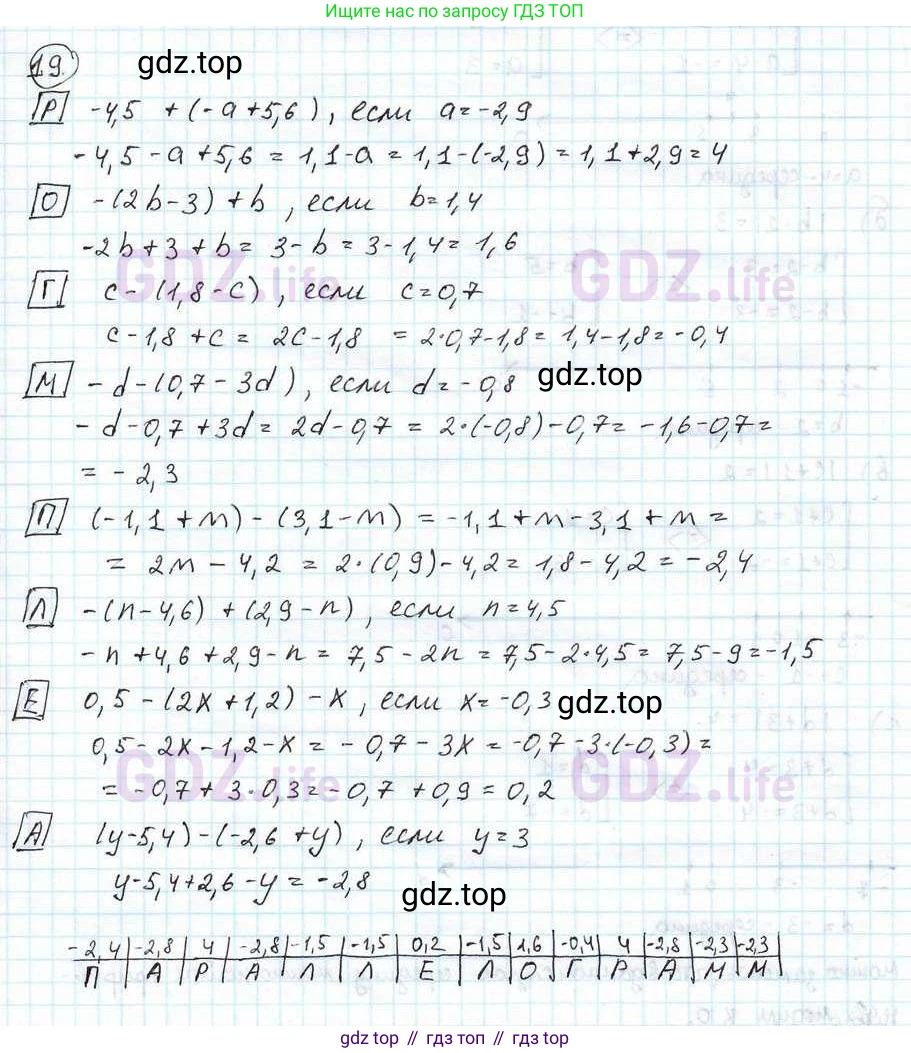 Ищите нас по запросу ГДЗ ТОП
19.
gdz.top
Р -4,5 + (-a+5,6), если a=-2,9
-4,5-a+5,6 = 1,1-a = 1,1-(-2,9) = 1,1+2,9=4
О -(2b-3)+b, если b=1,4
-2b+3+b= 3-b=3-1,4= 1,6
GDZ.life
GDZ.life
Г c-(1,8-c), если c=0,7
c-1,8+c= 2c-1,8 = 2·0,7-1,8= 1,4-1,8=-0,4
М -d-(0,7-3d), если d=-0,8
gdz.top
-d-0,7+3d= 2d-0,7 = 2·(-0,8)-0,7= -1,6-0,7=
= -2,3
П (-1,1+m)-(3,1-m) = -1,1+m-3,1+m =
= 2m-4,2 = 2·(0,9)-4,2= 1,8-4,2=-2,4
Л -(n-4,6)+(2,9-n), если n=4,5
-n+4,6+2,9-n = 7,5-2n = 7,5-2·4,5= 7,5-9=-1,5
Е 0,5-(2x+1,2)-x, если x=-0,3
gdz.top
0,5-2x-1,2-x = -0,7-3x = -0,7-3·(-0,3)=
GDZ.life
GDZ.life
= -0,7+3·0,3=-0,7+0,9=0,2
А (y-5,4)-(-2,6+y), если y=3
y-5,4+2,6-y=-2,8
gdz.top
-2,4 -2,8 4 -2,8 -1,5 -1,5 0,2 -1,5 1,6 -0,4 4 -2,8 -2,3 -2,3
П А Р А Л Л Е Л О Г Р А М М
gdz.top // гдз топ // gdz top